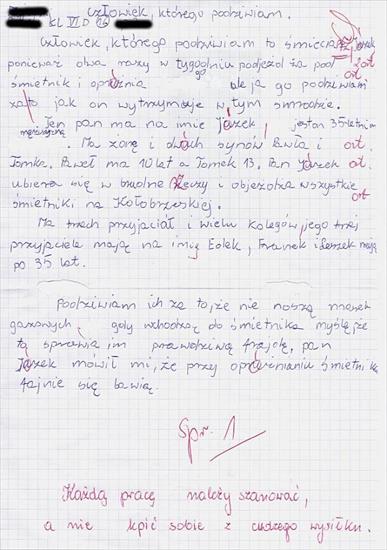 Człowiek, którego podziwiam.
Kl VI D
Człowiek, którego podziwiam to śmieciarz,
ponieważ dwa razy w tygodniu podjeżdża pod
śmietnik i opróżnia go ale ja go podziwiam
za to jak on wytrzymuje w tym smrodzie.
Ten pan ma na imię Jacek, jest on 35-letnim
mężczyzną
. Ma żonę i dwóch synów Pawła i ort.
Tomka. Paweł ma 10 lat a Tomek 13. Pan Jacek ort.
ubiera się w brudne rzeczy i objeżdża wszystkie
śmietniki na Kołobrzeskiej. ort
Ma trzech przyjaciół i wielu kolegów, jego trzej
przyjaciele mają na imię Lolek, Franek i Leszek mają
po 35 lat.
Podziwiam ich za to, że nie noszą masek
gazowych, gdy wchodzą do śmietnika myślę że
to sprawia im prawdziwą frajdę, pan
Jacek mówił mi, że przy opróżnianiu śmietnika
fajnie się bawią.
Spr. 1
Każdą pracę należy szanować,
a nie kpić sobie z cudzego wysiłku.